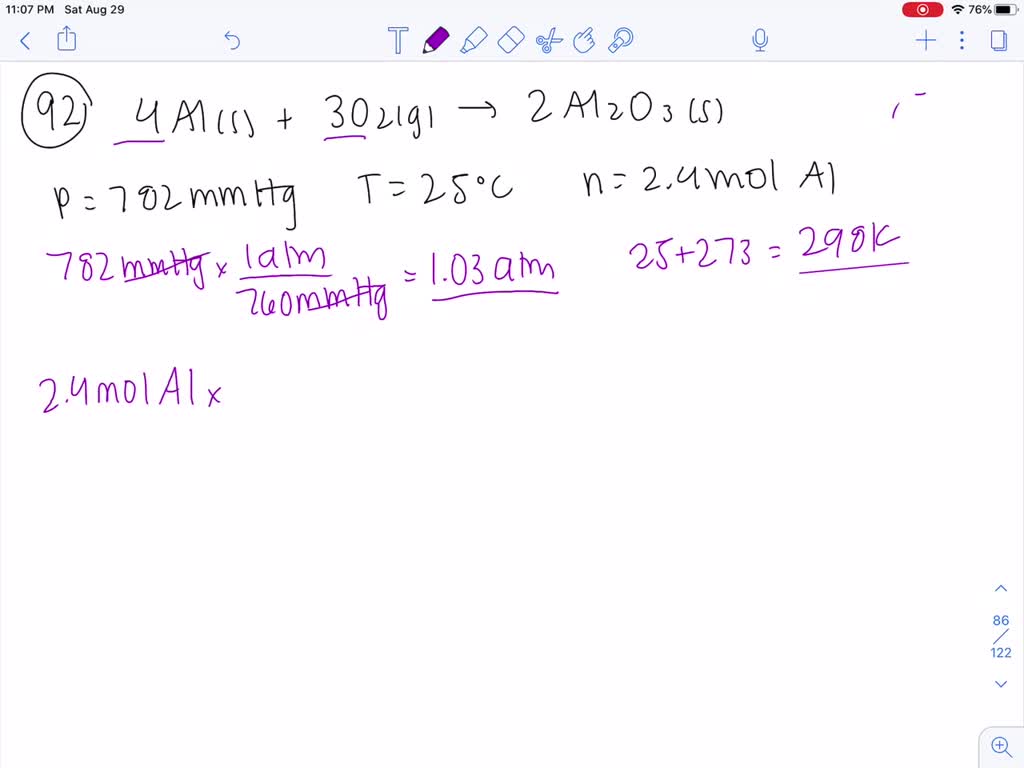 11:07 PM Sat Aug 29 76%
T
92) 4Al(s) + 3O2(g) → 2Al2O3(s)
P = 782 mmHg T = 25°C n = 2.4 mol Al
782 mmHg x 1 atm / 760 mmHg = 1.03 atm 25+273 = 298K
2.4 mol Al x
86
122